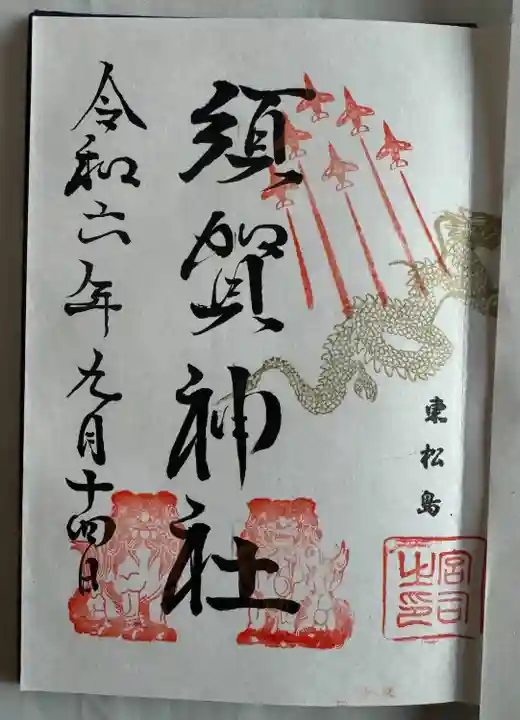 東松島
宮司之印
須賀神社
令和六年九月十四日